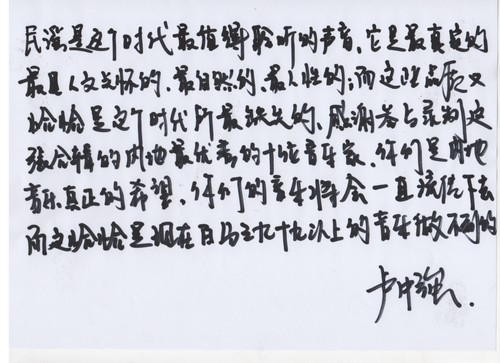 民谣是这个时代最值得聆听的声音，它是最真实的
最具人文关怀的、最自然的、最人性的；而这些品质又
恰恰是这个时代所最缺失的、感谢参与录制这
张合辑的内地最优秀的十位音乐家，你们是内地
音乐真正的希望，你们的音乐将会一直流传下去
而这恰恰是现在百分之九十九以上的音乐做不到的
卢中强.